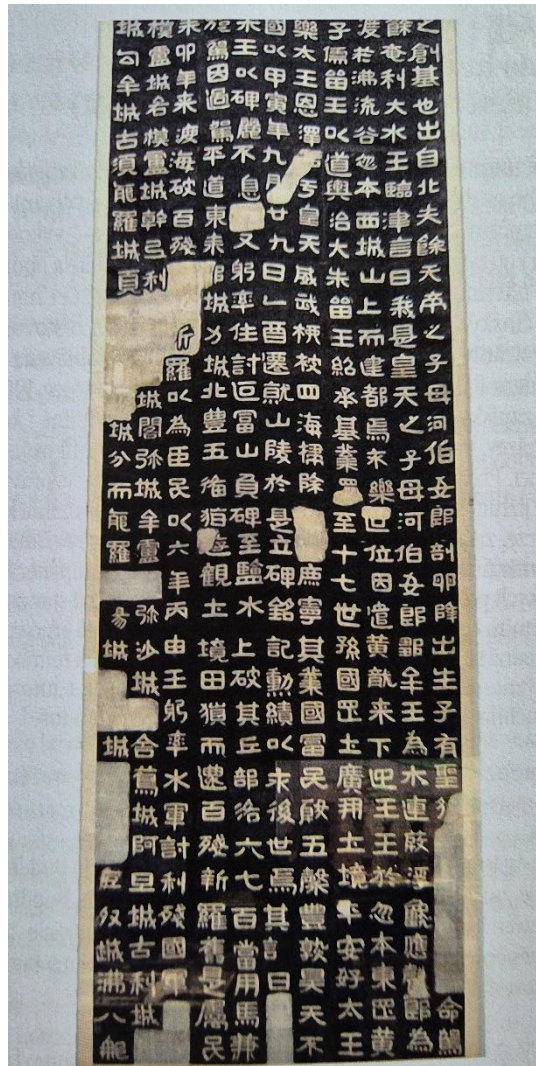 之創基也出自北夫餘天帝之子母河伯女郎剖卵降出生子有聖命駕
餘奄利大水王臨津言曰我是皇天之子母河伯女郎鄒牟王為木連葭浮龜應聲即為
渡於沸流谷忽本西城山上而建都焉不樂世位因遣黃龍來下迎王王於忽本東罡黃
子儒留王以道輿治大朱留王紹承基業至十七世孫國罡上廣開土境平安好太王
樂太王恩澤于皇天威武柳被四海掃除庶寧其業國富民殷五穀豐熟昊天不
國以甲寅年九月廿九日乙酉遷就山陵於是立碑銘記勳績以示後世焉其詞曰
王以碑麗不息又躬率住討叵富山負碑至鹽水上破其丘部洛六七百當用馬兼
旋駕因過駕平道東來城力城北豐五備猶遊觀土境田獵而還百殘新羅舊是屬民
卯年來渡海破百殘斤羅以為臣民以六年丙申王躬率水軍討利殘國軍
模盧城各模盧城幹弖利城閣彌城牟盧彌沙城舍蔦城阿旦城古利城
城勾牟城古須耶羅城頁城分而耶羅城城奴城沸八那